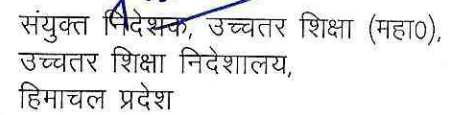 संयुक्त निदेशक, उच्चतर शिक्षा (महा0),
उच्चतर शिक्षा निदेशालय,
हिमाचल प्रदेश